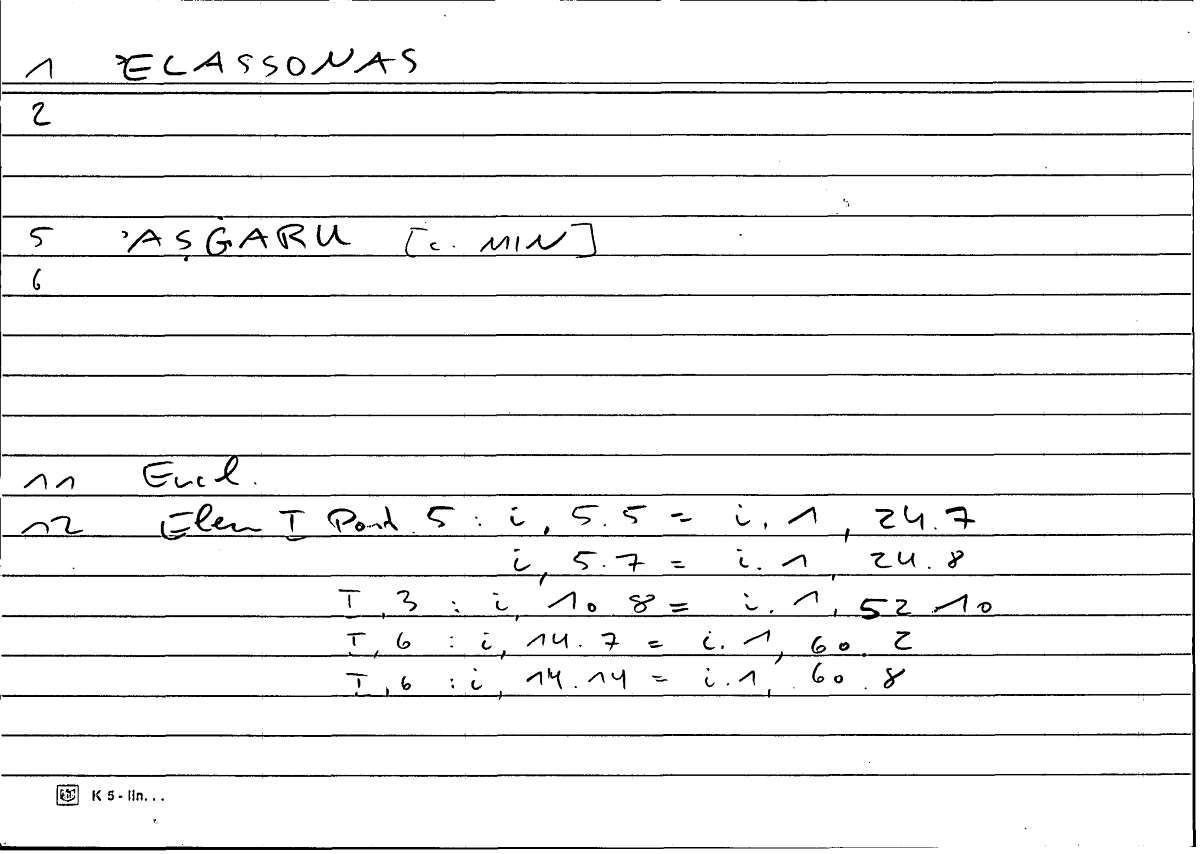 1 ʾELASSONAS
2
5 ʾAṢĠARU [c. MIN]
6
11 Eucl.
12 Elem I Post. 5 : i, 5.5 = i. 1, 24.7
i, 5.7 = i. 1, 24.8
I, 3 : i, 10.8 = i. 1, 52.10
I, 6 : i, 14.7 = i. 1, 60.2
I, 6 : i, 14.14 = i. 1, 60.8
K 5 - lin...